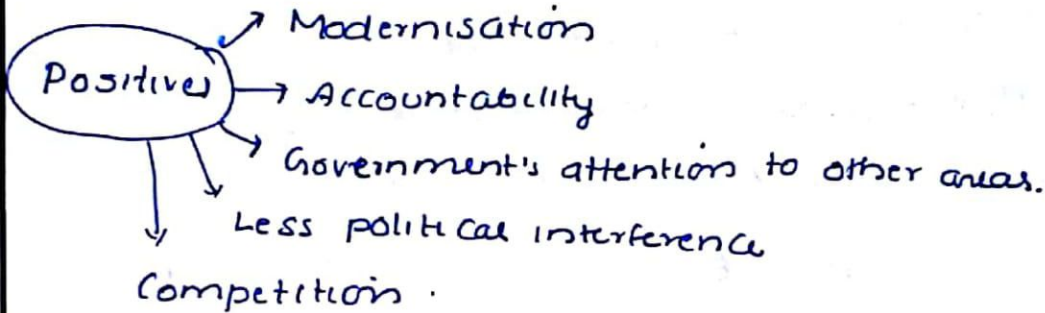 Modernisation
Positives
Accountability
Government's attention to other areas.
Less political interference
Competition.